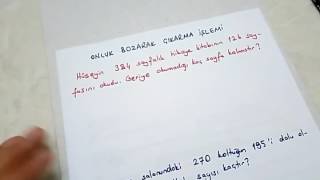 ONLUK BOZARAK ÇIKARMA İŞLEMİ
Hüseyin 384 sayfalık hikaye kitabının 126 say-
fasını okudu. Geriye okumadığı kaç sayfa kalmıştır?
salonundaki 270 koltuğun 195'i dolu ol-
sayısı kaçtır?